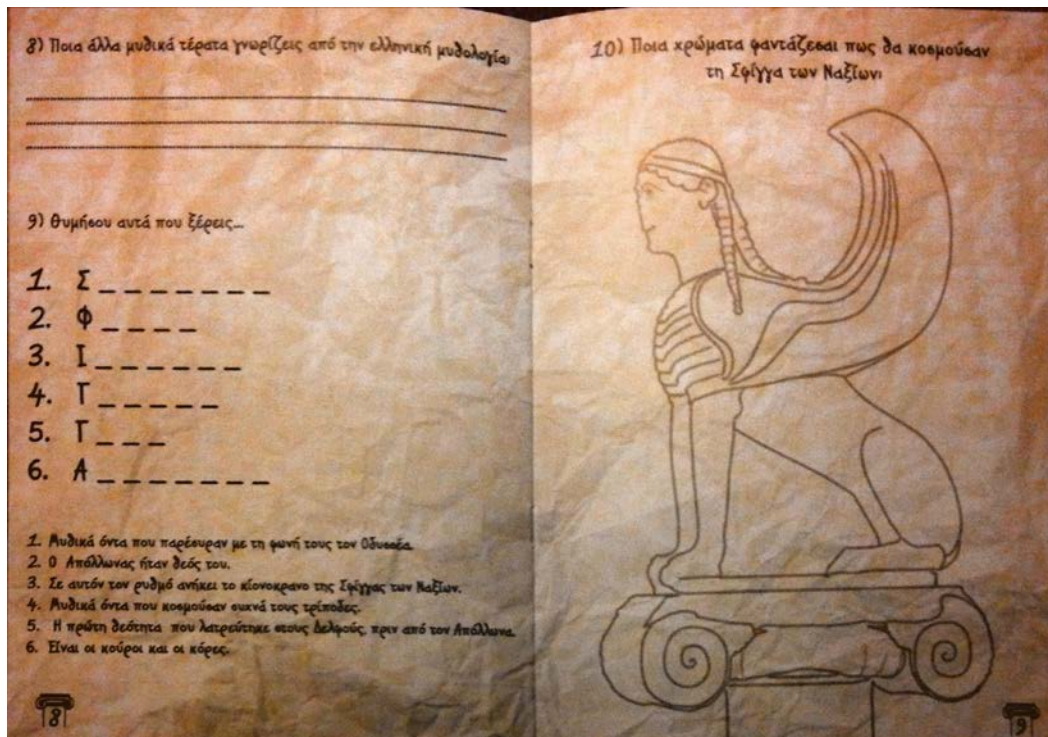 8) Ποια άλλα μυθικά τέρατα γνωρίζεις από την ελληνική μυθολογία;
9) Θυμήσου αυτά που ξέρεις...
1. Σ _ _ _ _ _ _ _
2. Φ _ _ _ _
3. Ι _ _ _ _ _ _
4. Γ _ _ _ _ _
5. Γ _ _ _
6. Α _ _ _ _ _ _ _
1. Μυθικά όντα που παρέσυραν με τη φωνή τους τον Οδυσσέα.
2. Ο Απόλλωνας ήταν θεός του.
3. Σε αυτόν τον ρυθμό ανήκει το κιονόκρανο της Σφίγγας των Ναξίων.
4. Μυθικά όντα που κοσμούσαν συχνά τους τρίποδες.
5. Η πρώτη θεότητα που λατρεύτηκε στους Δελφούς, πριν από τον Απόλλωνα.
6. Είναι οι κούροι και οι κόρες.
8
10) Ποια χρώματα φαντάζεσαι πως θα κοσμούσαν
τη Σφίγγα των Ναξίων;
9